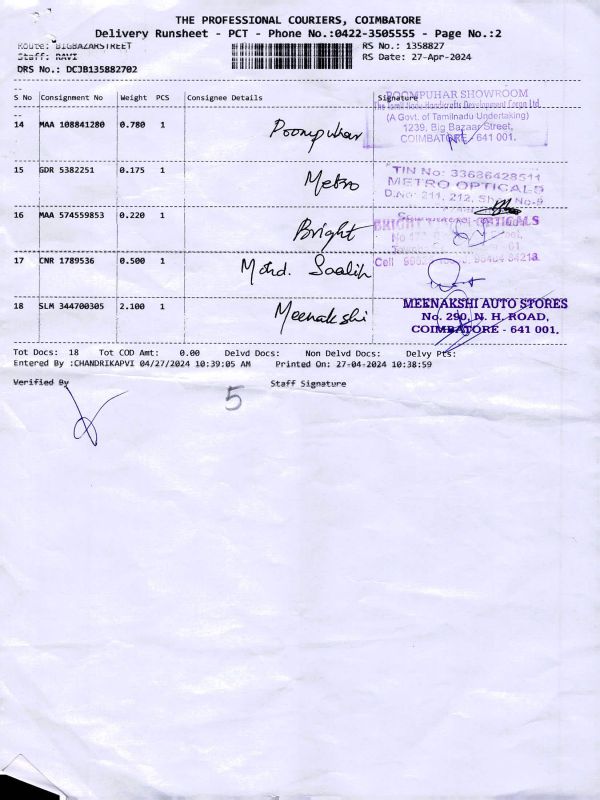 THE PROFESSIONAL COURIERS, COIMBATORE
Delivery Runsheet - PCT - Phone No.:0422-3505555 - Page No.:2
Route: BIGBAZARSTREET RS No.: 1358827
Staff: RAVI RS Date: 27-Apr-2024
DRS No.: DCJB135882702
S No Consignment No Weight PCS Consignee Details Signature
POOMPUHAR SHOWROOM
The Tamil Nadu Handicrafts Development Corpn Ltd.
(A Govt. of Tamilnadu Undertaking)
14 MAA 108841280 0.780 1 Poompuhar 1239, Big Bazaar Street,
COIMBATORE - 641 001.
15 GDR 5382251 0.175 1 Metro TIN No: 33686428511
METRO OPTICALS
D.No: 211, 212, Shop No-9
16 MAA 574559853 0.220 1 Bright BRIGHT OPTICALS
17 CNR 1789536 0.500 1 Mohd. Saalih Cell
18 SLM 344700305 2.100 1 Meenakshi MEENAKSHI AUTO STORES
No. 290, N. H. ROAD,
COIMBATORE - 641 001.
Tot Docs: 18 Tot COD Amt: 0.00 Delvd Docs: Non Delvd Docs: Delvy Pts:
Entered By :CHANDRIKAPVI 04/27/2024 10:39:05 AM Printed On: 27-04-2024 10:38:59
Verified By Staff Signature
5